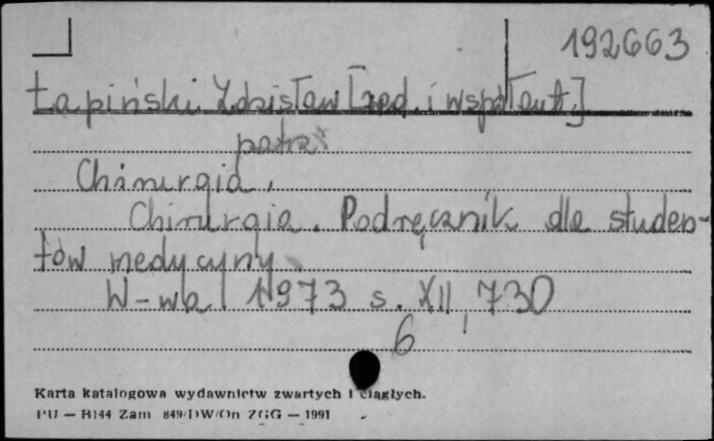 192663
Łapiński Zdzisław [red. i współaut.]
patrz
Chirurgia.
Chirurgia. Podręcznik dla studen-
tów medycyny.
W-wa 1973 s. XII, 730
6
Karta katalogowa wydawnictw zwartych i ciągłych.
PU — B144 Zam 849/DW/On ZGG — 1991